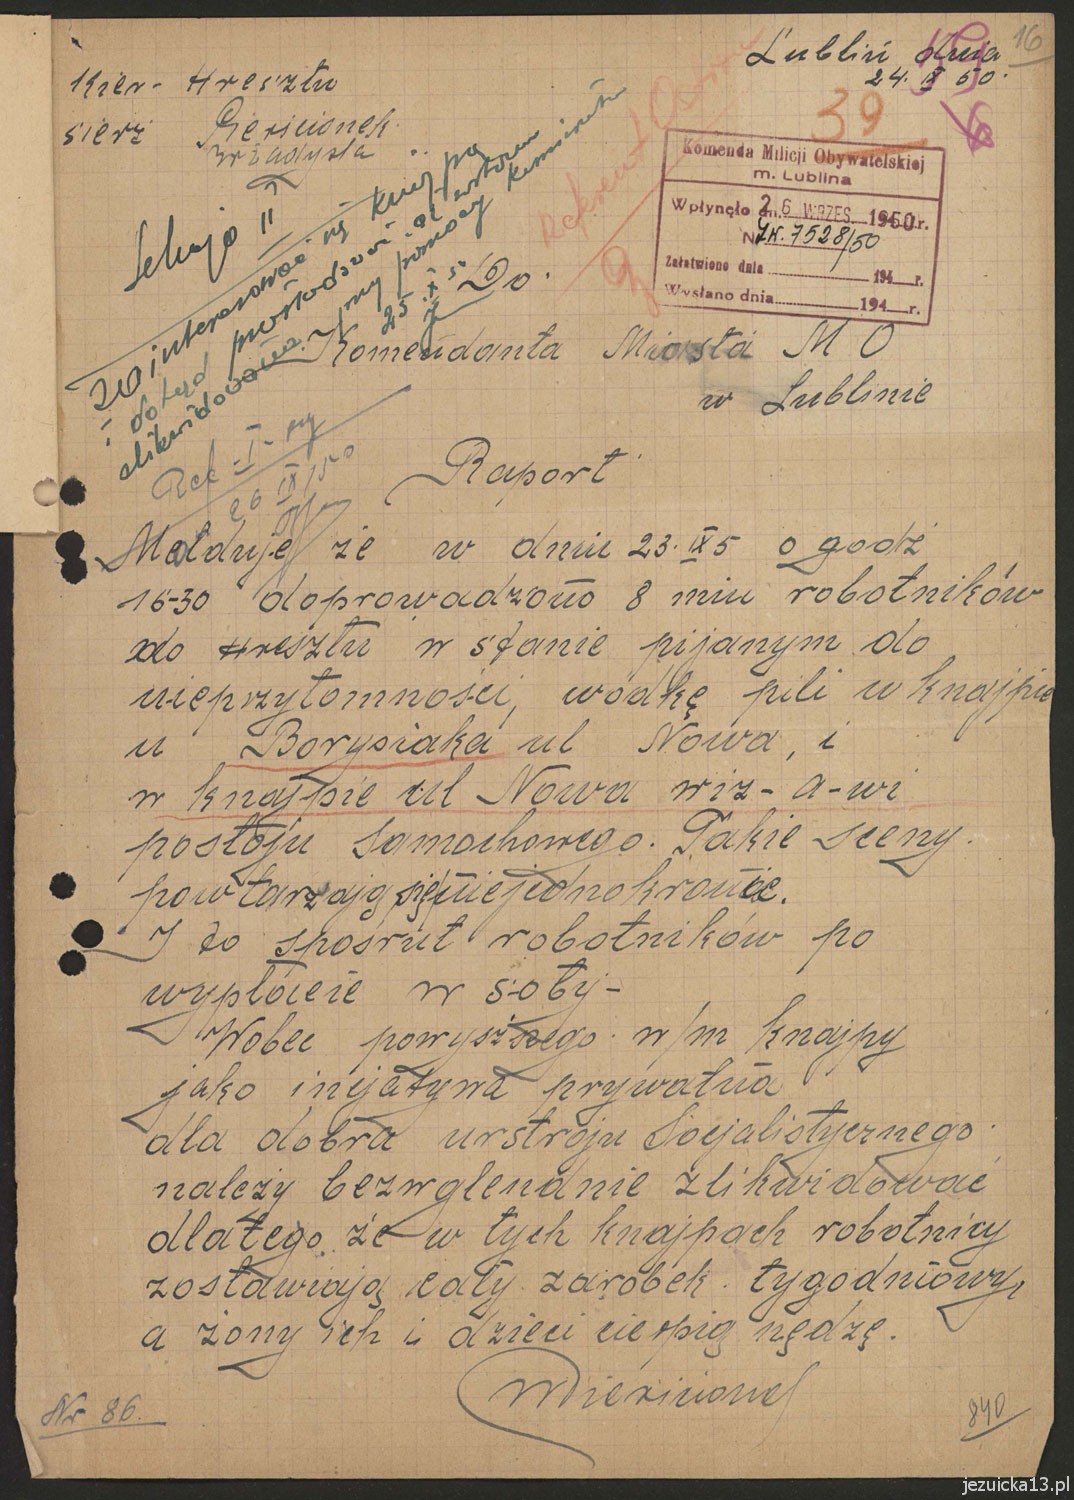 16
Lublin dnia
24. IX 50.
Kier- Aresztu
sierż Pierścionek
Władysła
39
Komenda Milicji Obywatelskiej
m. Lublina
Wpłynęło dn. 26 WRZES. 1950 r.
N JK. 7528/50
Załatwiono dnia 194 r.
Wysłano dnia 194 r.
Sekcja II
zainteresować się knajpą
i dotąd
zlikwidowana przy pomocy komisariatu
25.IX 50
Ref I-
26 IX/50
Do.
Komendanta Miasta M O
w Lublinie
Raport
Melduje że w dniu 23. IX 5 o godź
16-30 doprowadzono 8 miu robotników
do Aresztu w stanie pijanym do
nieprzytomności, wódkę pili w knajpie
u Borysiaka ul Nowa, i
w knajpie ul Nowa wiz-a-wi
postoju samochowego. Takie sceny.
powtarzają się niejednokrotnie.
I to spośrut robotników po
wypłácie w soty-
Wobec powyższego w/m knajpy
jako inicjatywa prywatna
dla dobra urstroju Socjalistycznego
należy bezwglendnie zlikwidować
dlatego że w tych knajpach robotnicy
zostawiają cały zarobek tygodniowy,
a żony ich i dzieci cierpią nędzę.
WPierścionek
Nr 86.
840
jezuicka13.pl